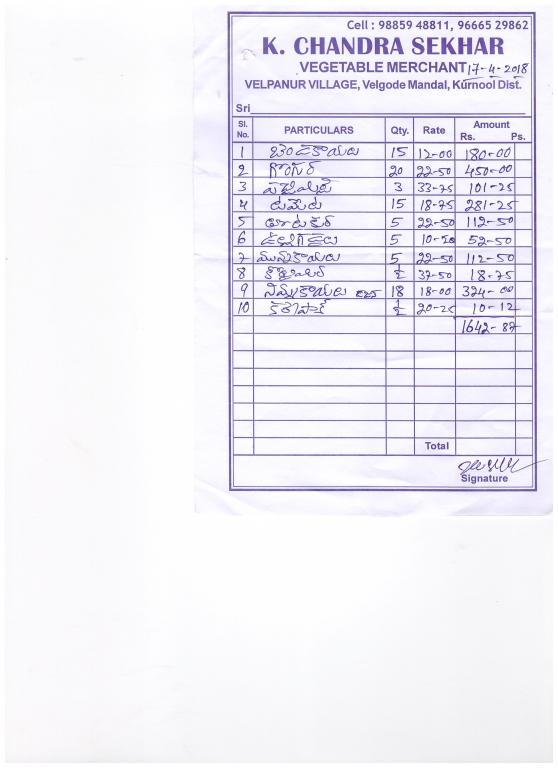 Cell : 98859 48811, 96665 29862
K. CHANDRA SEKHAR
VEGETABLE MERCHANT 17-4-2018
VELPANUR VILLAGE, Velgode Mandal, Kurnool Dist.
Sri
Sl. No. PARTICULARS Qty. Rate Amount Rs. Ps.
1 బెండకాయలు 15 12-00 180-00
2 గోంగూర 20 22-50 450-00
3 3 33-75 101-25
4 టమోటా 15 18-75 281-25
5 5 22-50 112-50
6 5 10-50 52-50
7 మునక్కాయలు 5 22-50 112-50
8 ½ 37-50 18-75
9 నిమ్మకాయలు 18 18-00 324-00
10 ½ 20-25 10-12
1642-87
Total
Signature